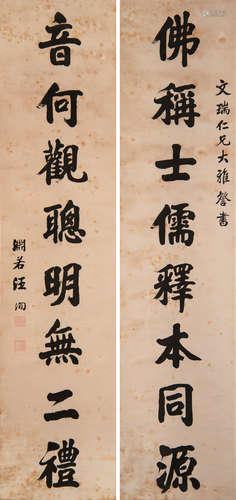 文瑞仁兄大雅督書
佛稱士儒釋本同源
音何觀聰明無二禮
淵若汪洵